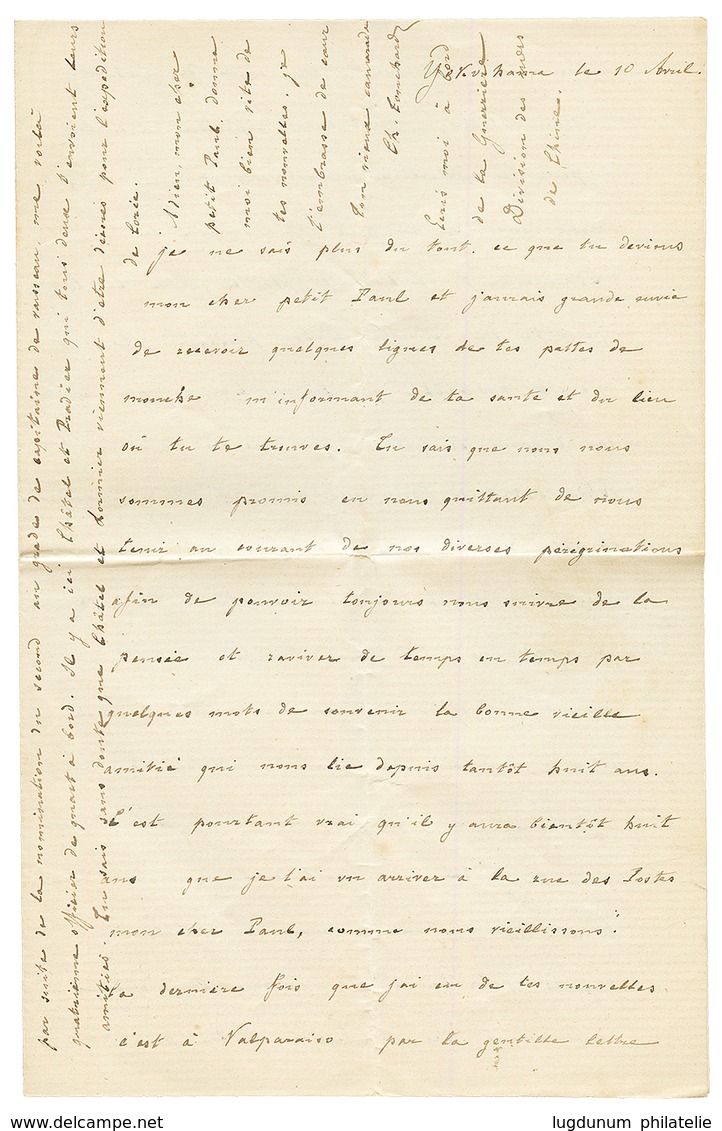 Yokohama le 10 Avril.
je ne sais plus du tout ce que tu deviens
mon cher petit Paul et j'aurais grande envie
de recevoir quelques lignes de tes pattes de
mouche m'informant de ta santé et du lieu
où tu te trouves. Tu sais que nous nous
sommes promis en nous quittant de nous
tenir au courant de nos diverses pérégrinations
afin de pouvoir toujours nous suivre de la
pensée et raviver de temps en temps par
quelques mots de souvenir la bonne vieille
amitié qui nous lie depuis tantôt huit ans.
C'est pourtant vrai qu'il y aura bientôt huit
ans que je t'ai vu arriver à la rue des Postes
mon cher Paul, comme nous vieillissons!
La dernière fois que j'ai eu de tes nouvelles
c'est à Valparaiso par la gentille lettre
par suite de la nomination du second au grade de capitaine de vaisseau, me voilà
quatrième officier de quart à bord. Il y a ici Châtel et Pradier qui tous deux t'envoient leurs
amitiés. Tu sais sans doute que Châtel et viennent d'être décorés pour l'expédition
de Corée.
Adieu, mon cher
petit Paul. donne
moi bien vite de
tes nouvelles. je
t'embrasse de cœur
ton vieux camarade
Ch.
Ecris moi à bord
de la Guerrière
Division des mers
de Chine.
lugdunum philatelie